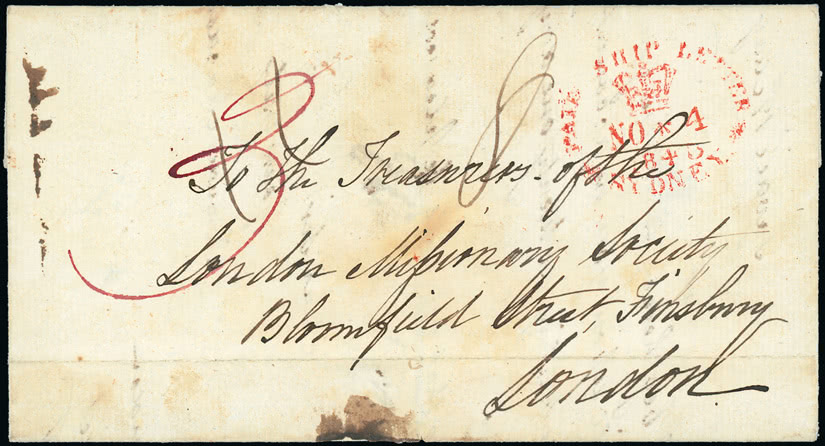 PAID SHIP LETTER
NO * 4
SYDNEY
3
8
To The Treasurers of the
London Missionary Society
Bloomfield Street, Finsbury
London